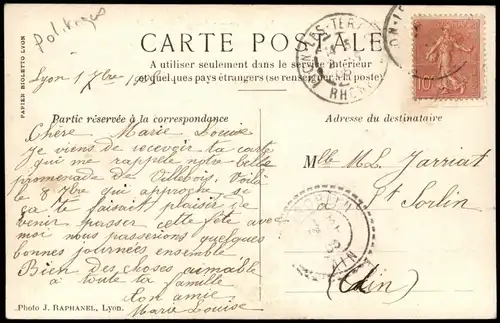 Politiques
CARTE POSTALE
A utiliser seulement dans le service intérieur
et quelques pays étrangers (se renseigner à la poste)
PAPIER BIOLETTO LYON
Lyon 1 7bre
Partie réservée à la correspondance
Adresse du destinataire
Chère Marie Louise
je viens de recevoir ta carte
qui me rappele notre belle
promenade de Villebois. Voilà
le 8 7bre qui approche si
ça te faisait plaisir de
venir passer cette fête avec
moi nous passerions quelques
bonnes journées ensemble
Bien des choses aimable
à toute ta famille
ton amie
Marie Louise
Mlle M L Jarriat
St Sorlin
(Ain)
RHÔNE
10
Photo J. RAPHANEL, Lyon.